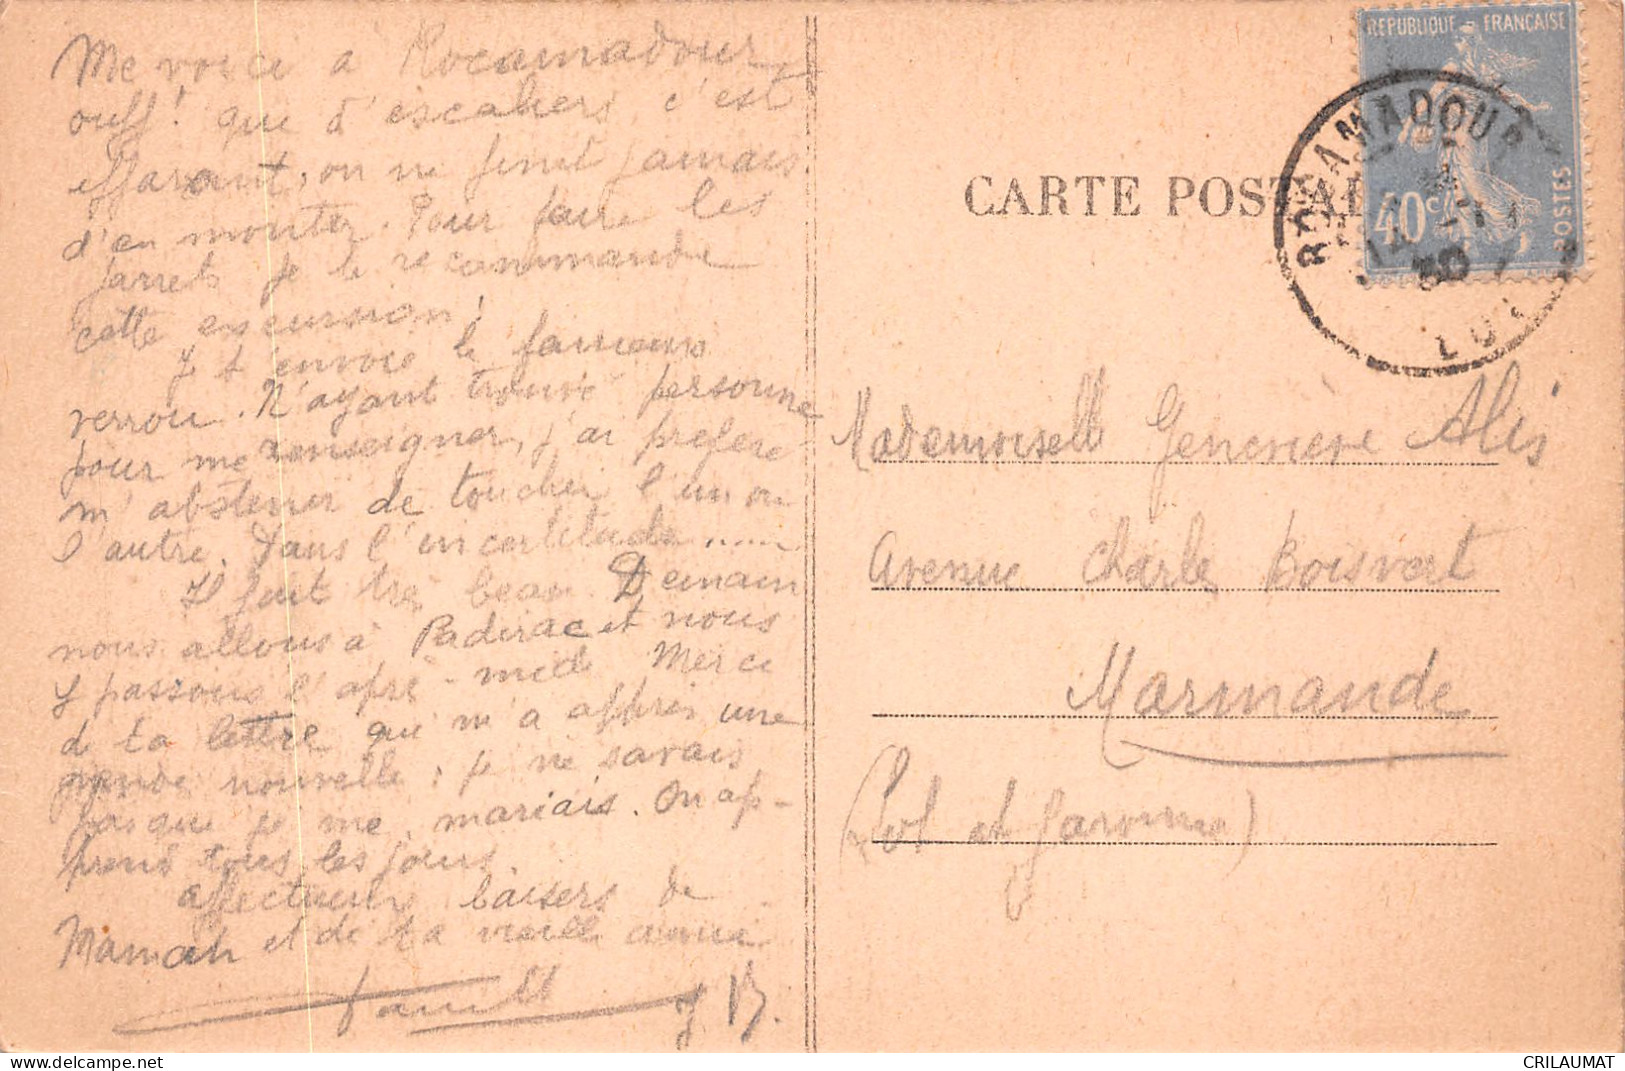 Me voici à Rocamadour,
ouff! que d'escaliers, c'est
effarant, on ne finit jamais
d'en monter. Pour faire les
jarrets je te recommande
cette excursion!
Je t envoie le fameux
verrou. N'ayant trouvé personne
pour me renseigner, j'ai préféré
m'abstenir de toucher l'un ou
l'autre. Dans l'incertitude.....
Il fait très beau. Demain
nous allons à Padirac et nous
y passons l'après-midi Merci
d ta lettre qui m'a appris une
grande nouvelle : je ne savais
pas que je me mariais. On ap-
prend tous les jours.
affectueux baisers de
Maman et de ta vieille amie
J B.
CARTE POSTALE
REPUBLIQUE FRANÇAISE
40c
POSTES
ROCAMADOUR
30
LOT
Mademoiselle Geneviève Alis
Avenue Charles Boisvert
Marmande
(Lot et Garonne)
CRILAUMAT